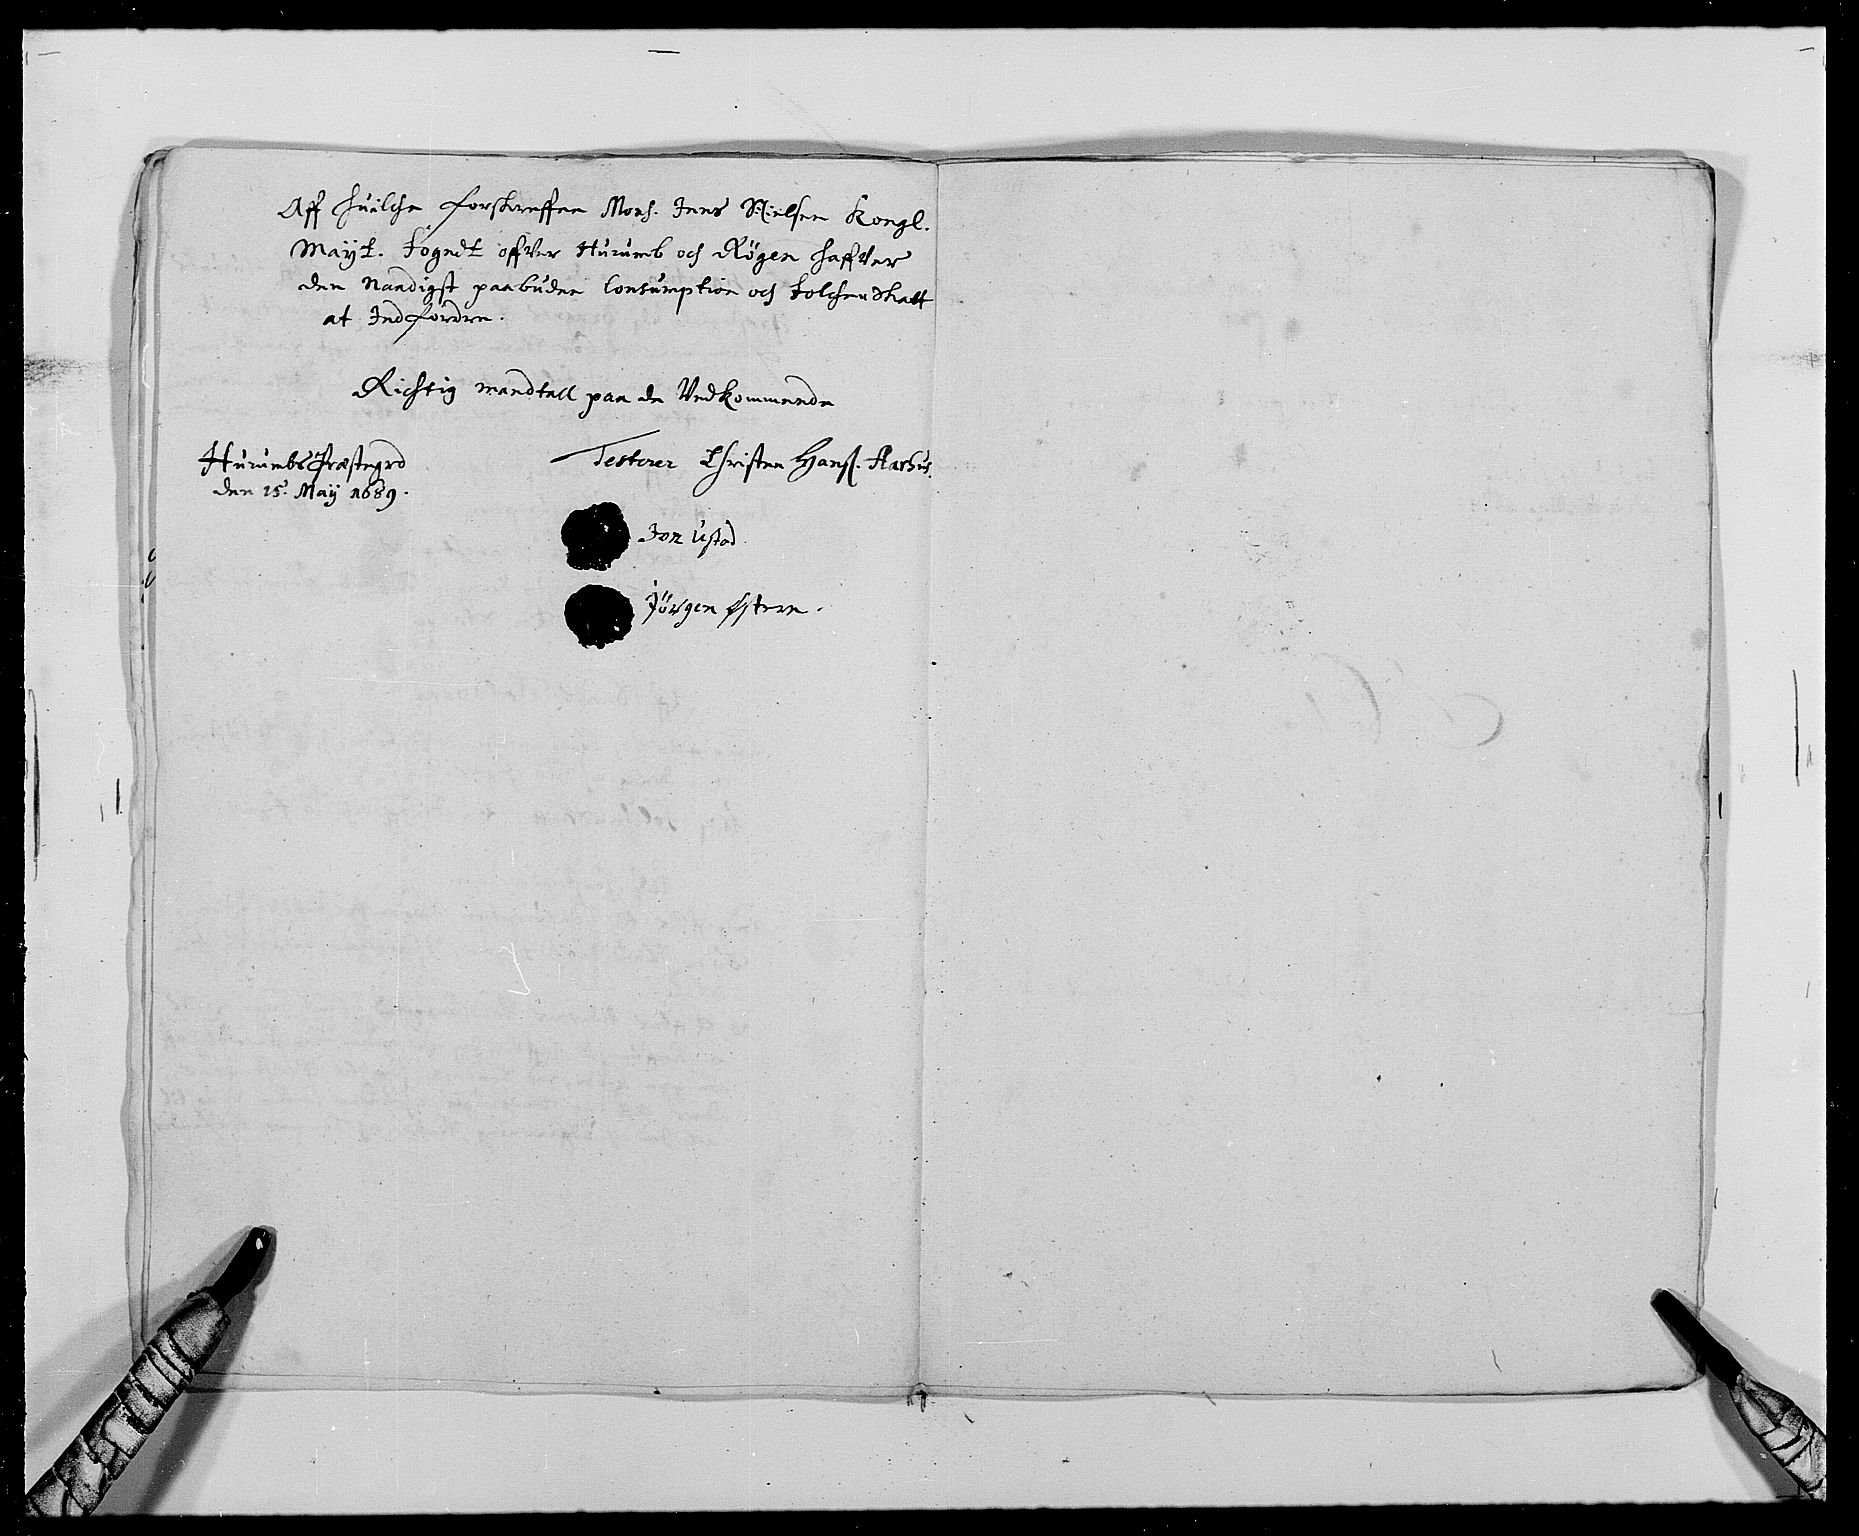 Aff huilche forskreffne Mons. Jens Nielsen Kongl.
Maÿt. fogedt offver Hurumb och Røgen haffver
den Naadigst paabudne Consumption och folcheskatt
at Indfordre.
Richtig mandtall paa de Vedkommende
Hurumbs Præstegrd
den 15. Maÿ 1689.
Testerer Christen Hanss. Aarhus.
Jon Ustad
Jörgen Østern.